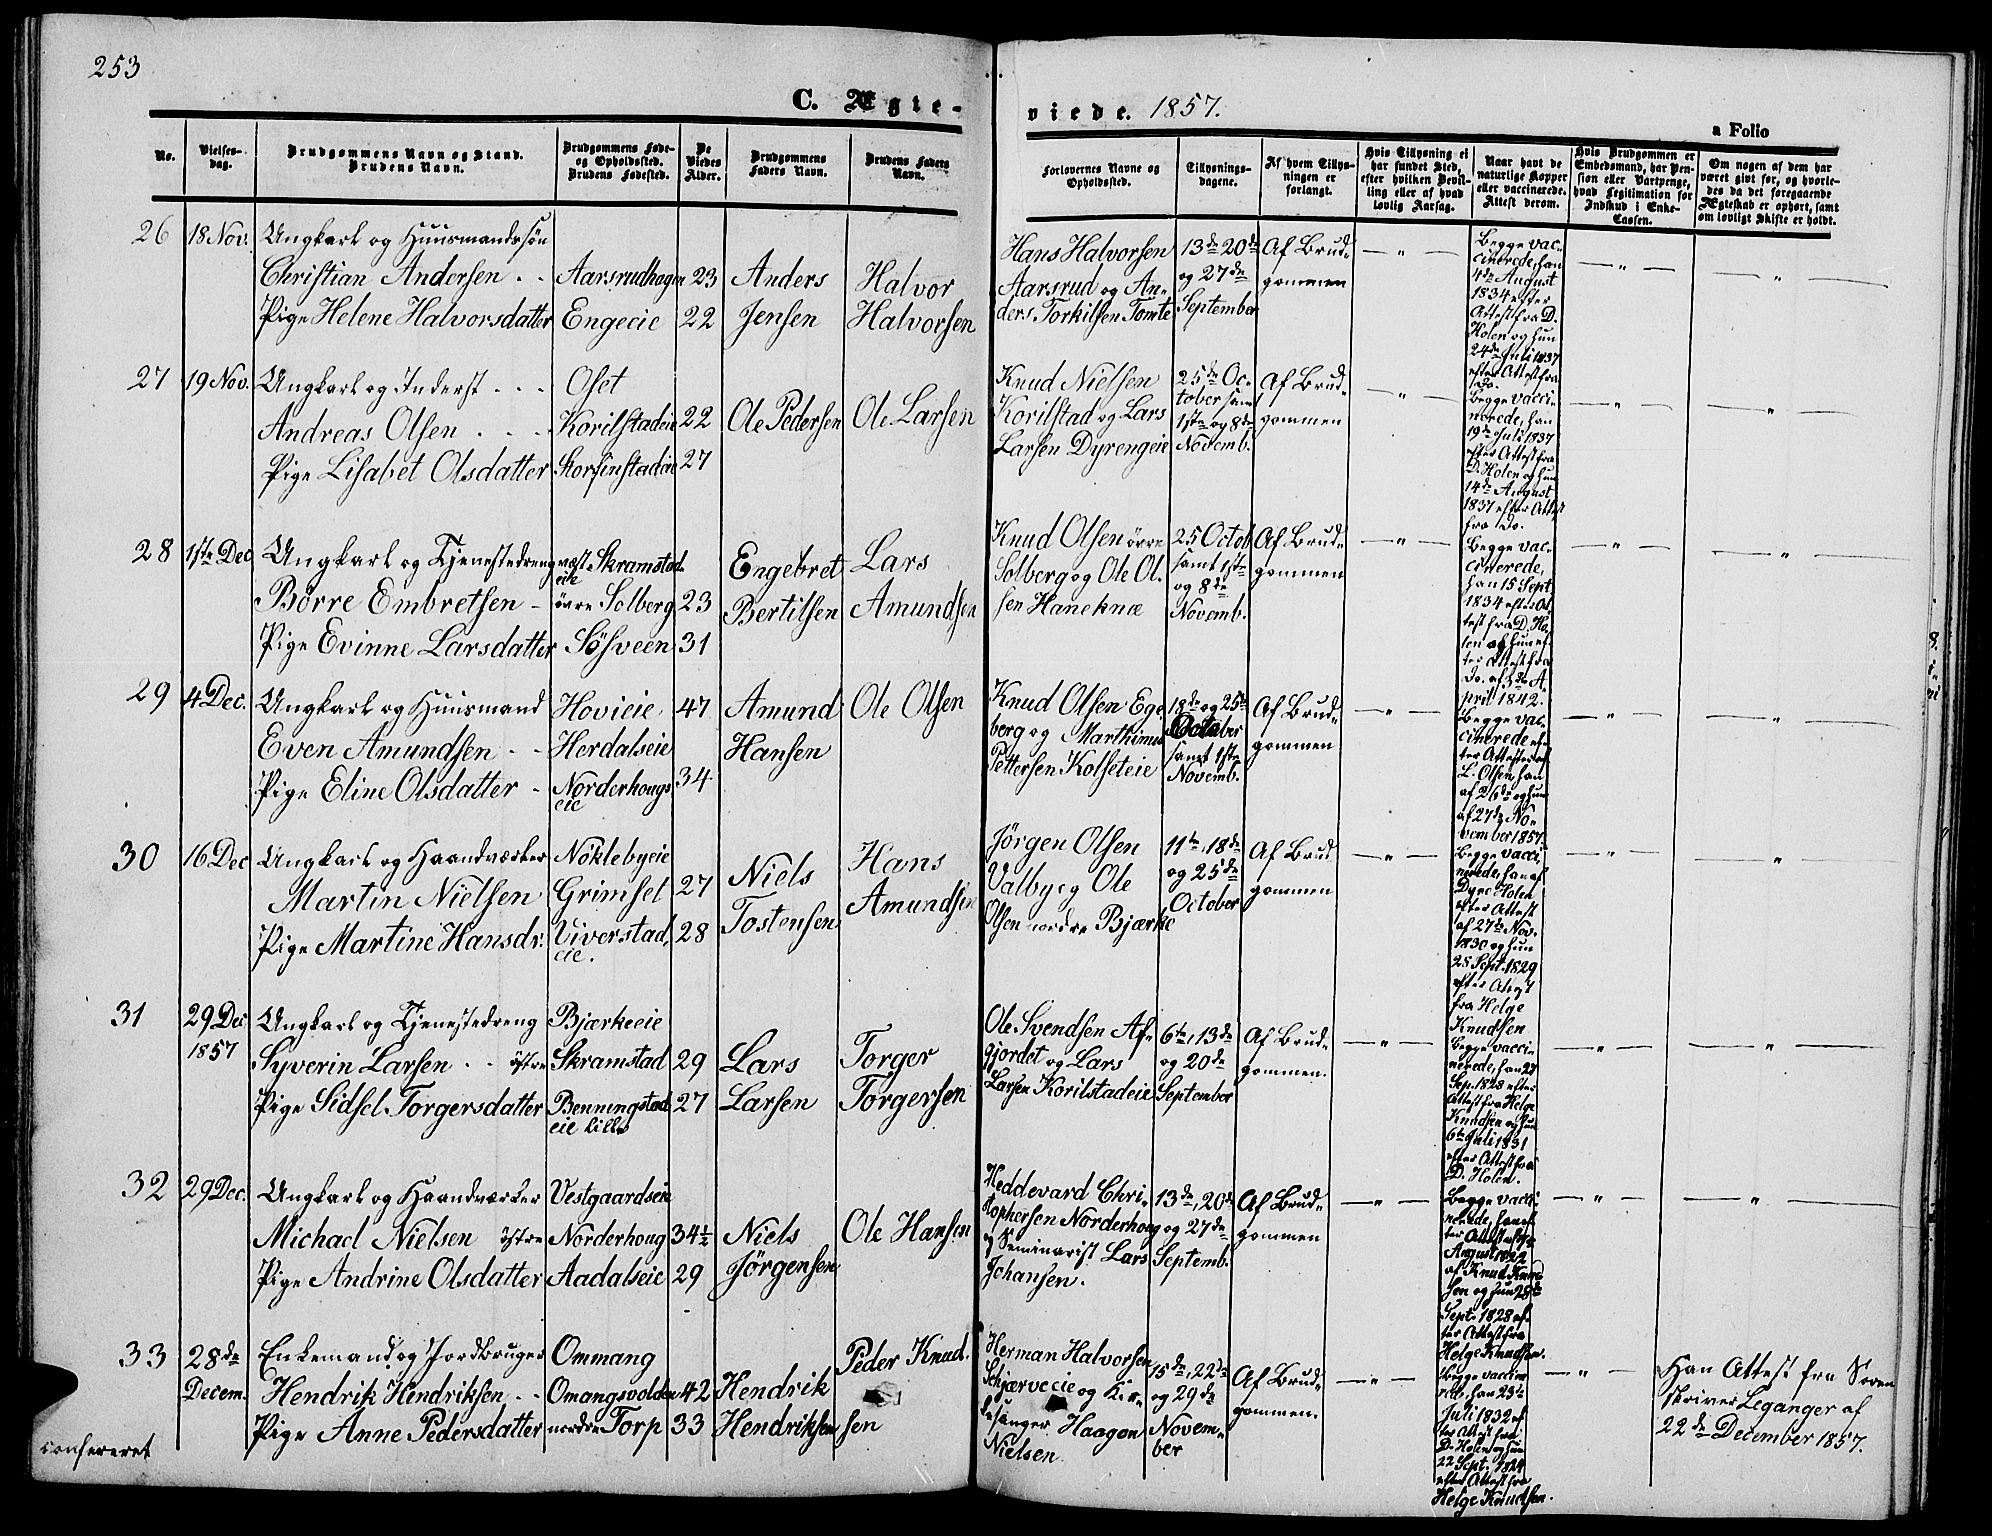 253
C. Ægte-
viede. 1857.
a Folio
No.
Vielses-
dag.
Brudgommens Navn og Stand.
Brudens Navn.
Brudgommens Føde-
og Opholdssted.
Brudens Fødested.
De
Viedes
Alder.
Brudgommens
Faders Navn.
Brudens Faders
Navn.
Forlovernes Navne og
Opholdssted.
Tillysnings-
dagene.
Af hvem Tillys-
ningen er
forlangt.
Hvis Tillysning ei
har fundet Sted,
efter hvilken Bevil-
ling eller af hvad
lovlig Aarsag.
Naar havt de
naturlige Kopper
eller vaccinerede.
Attest derom.
Hvis Brudgommen er
Embedsmand, har Pen-
sion eller Vartpenge,
hvad Legitimation for
Indskud i Enke-
Cassen.
Om nogen af dem har
været gift før, og hvorle-
des da det foregaaende
Ægteskab er ophørt, samt
om lovligt Skifte er holdt.
26
18 Nov.
Ungkarl og Huusmandssøn
Christian Andersen . .
Pige Helene Halvorsdatter
Aarsrudhagen
Engeeie
23
22
Anders
Jensen
Halvor
Halvorsen
Hans Halvorsen
Aarsrud og An-
ders Torkilsen Tomte
13de 20de
og 27de
September
Af Brud-
gommen
— " —
Begge vac-
cinerede, han
4de August
1834 efter
Attest fra D.
Holen og hun
24de Juli 1837
efter Attest fra
Do.
— " —
— " —
27
19 Nov.
Ungkarl og Inderst . . .
Andreas Olsen . . .
Pige Lisabet Olsdatter
Oset
Korilstadeie
Storfinstadeie
22
27
Ole Pedersen
Ole Larsen
Knud Nielsen
Korilstad og Lars
Larsen Dyrengeie
25de Oc-
tober samt
1ste og 8de
Novemb.
Af Brud-
gommen
— " —
Begge vacci-
nerede, han
19de Juli 1837
efter Attest fra
D. Holen og hun
14de August
1837 efter Attest
fra Do.
— " —
— " —
28
1ste Dec
Ungkarl og Tjenestedreng
Börre Embretsen -
Pige Evinne Larsdatter
vest. Skramstad
eie
övre Solberg
Sösveen
23
31
Engebret
Bertilsen
Lars
Amundsen
Knud Olsen övre
Solberg og Ole Ol-
sen Haneknæ
25 Octob
samt 1ste
og 8de
Novemb.
Af Brud-
gommen
— " —
Begge vac-
cinerede,
han 15 Sept.
1834 efter At-
test fra D. Ho-
len og hun ef-
ter Attest fra
Do. af 3de A-
pril 1842.
— " —
— " —
29
4 Dec.
Ungkarl og Huusmand
Even Amundsen . .
Pige Eline Olsdatter -
Hovieie
Herdalseie
Norderhougs
eie
47
34
Amund
Hansen
Ole Olsen
Knud Olsen Ege-
berg og Marthinus
Pettersen Kolseteie
18de og 25de
October
samt 1ste
Novemb.
Af Brud-
gommen
— " —
Begge vac-
cinerede ef-
ter Attester af
L. Olsen, han
af 26de og hun
af 27de No-
vember 1857.
— " —
— " —
30
16 Dec
Ungkarl og Haandværker
Martin Nielsen
Pige Martine Hansdr.
Nöklebyeie
Grimset
Viverstad
eie.
27
28
Niels
Tostensen
Hans
Amundsen
Jörgen Olsen
Valby og Ole
Olsen nordre Bjærke
11te, 18de
og 25de
October
Af Brud
gommen
— " —
Begge vacci-
nerede, han af
Dyne Holen
efter Attest
af 27de Nov.
1830 og hun
28 Sept. 1829
efter Attest
fra Helge
Knudsen
— " —
"
31
29 Dec
1857
Ungkarl og Tjenestedreng
Syverin Larsen . . östre
Pige Sidsel Torgersdatter
Bjærkeeie
Skramstad
Benningstad
eie Lills
29
27
Lars
Larsen
Torger
Torgersen
Ole Svendsen Af-
gjordet og Lars
Larsen Korilstadeie
6te, 13de
og 20de
September
Af Brud-
gommen.
— " —
Begge vacci-
nerede, han 27
Sep. 1828 efter
Attest fra Helge
Knudsen og hun
6te Juli 1831
efter Attest fra
D. Holen.
— " —
— " —
32
29 Dec.
Ungkarl og Haandværker
Michael Nielsen östre
Pige Andrine Olsdatter
Vestgaardseie
Norderhoug
Aadalseie
34½
29
Niels
Jörgensen
Ole Hansen
Heddevard Chri-
stophersen Norderhoug
og Seminarist Lars
Johansen.
13de, 20de
og 27de
Septemb.
Af Brud-
gommen
— " —
Begge vacci-
nerede, han ef-
ter Attest af
August 1822
af Knud Knud-
sen og hun 28de
Sept. 1828 ef-
ter Attest fra
Helge Knudsen.
— " —
— " —
33
28de
Decem.
Enkemand og Jordbruger
Hendrik Hendriksen . .
Pige Anne Pedersdatter
Ommang
Omangsvolden
nordre Torp
42
33
Hendrik
Hendriksen
Peder Knud-
sen
Herman Halvorsen
Schjærveeie og Kir-
kesanger Haagon
Nielsen
15de, 22de
og 29de
Novem-
ber
Af Brud-
gommen.
— " —
Begge vaccine-
rede, han 23de
Juli 1832 ef-
ter Attest fra
D. Holen og hun
22 Sept. 1824
efter Attest fra
Helge Knudsen.
— " —
Han Attest fra Soren
skriver Leganger af
22de December 1857.
confereret